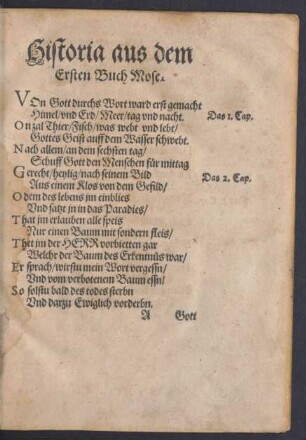 Historia aus dem
Ersten Buch Mose.
VOn Gott durchs Wort ward erst gemacht
Himel/vnd Erd/Meer/tag vnd nacht. Das 1. Cap.
Onzal Thier/Fisch/was webt vnd lebt/
Gottes Geist auff dem Wasser schwebt.
Nach allem/an dem sechsten tag/
Schuff Gott den Menschen für mittag
Gerecht/heylig/nach seinem Bild Das 2. Cap.
Aus einem Klos von dem Gefild/
Odem des lebens im einblies
Vnd satzt jn in das Paradies/
That jm erlauben alle speis
Nur einen Baum mit sondern fleis/
Thet jm der HERR vorbietten gar
Welchr der Baum des Erkentnüs war/
Er sprach/wirstu mein Wort vergessn/
Vnd vom verbotenem Baum essn/
So solstu bald des todes sterbn
Vnd darzu Ewiglich vorderbn.
A Gott